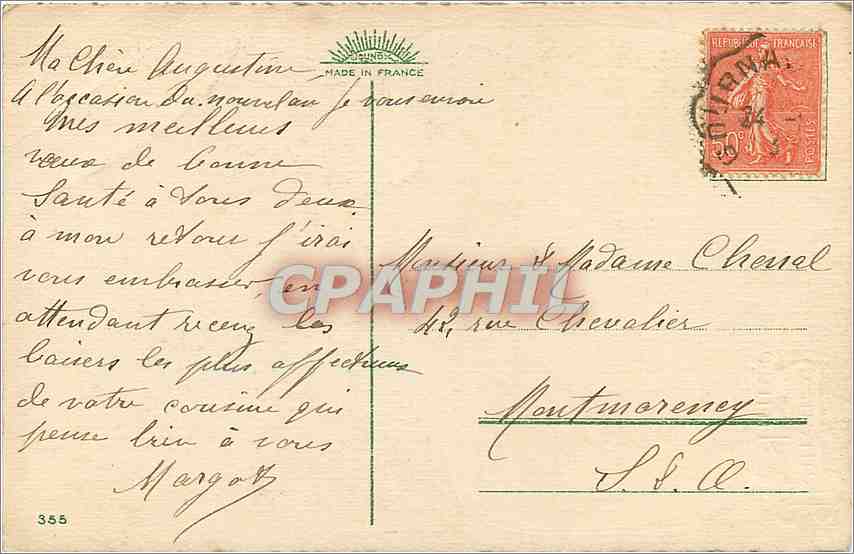 Ma Chère Augustine
A l'occasion du nouvel an je vous envoie
mes meilleurs
vœux de bonne
santé à tous deux
à mon retour j'irai
vous embrasser, en
attendant recevez les
baisers les plus affectueux
de votre cousine qui
pense bien à vous
Margot
355
MADE IN FRANCE
REPUBLIQUE FRANÇAISE
50c
POSTES
24
Monsieur & Madame Chenal
42, rue Chevalier
Montmorency
S. & O.
CPAPHIL